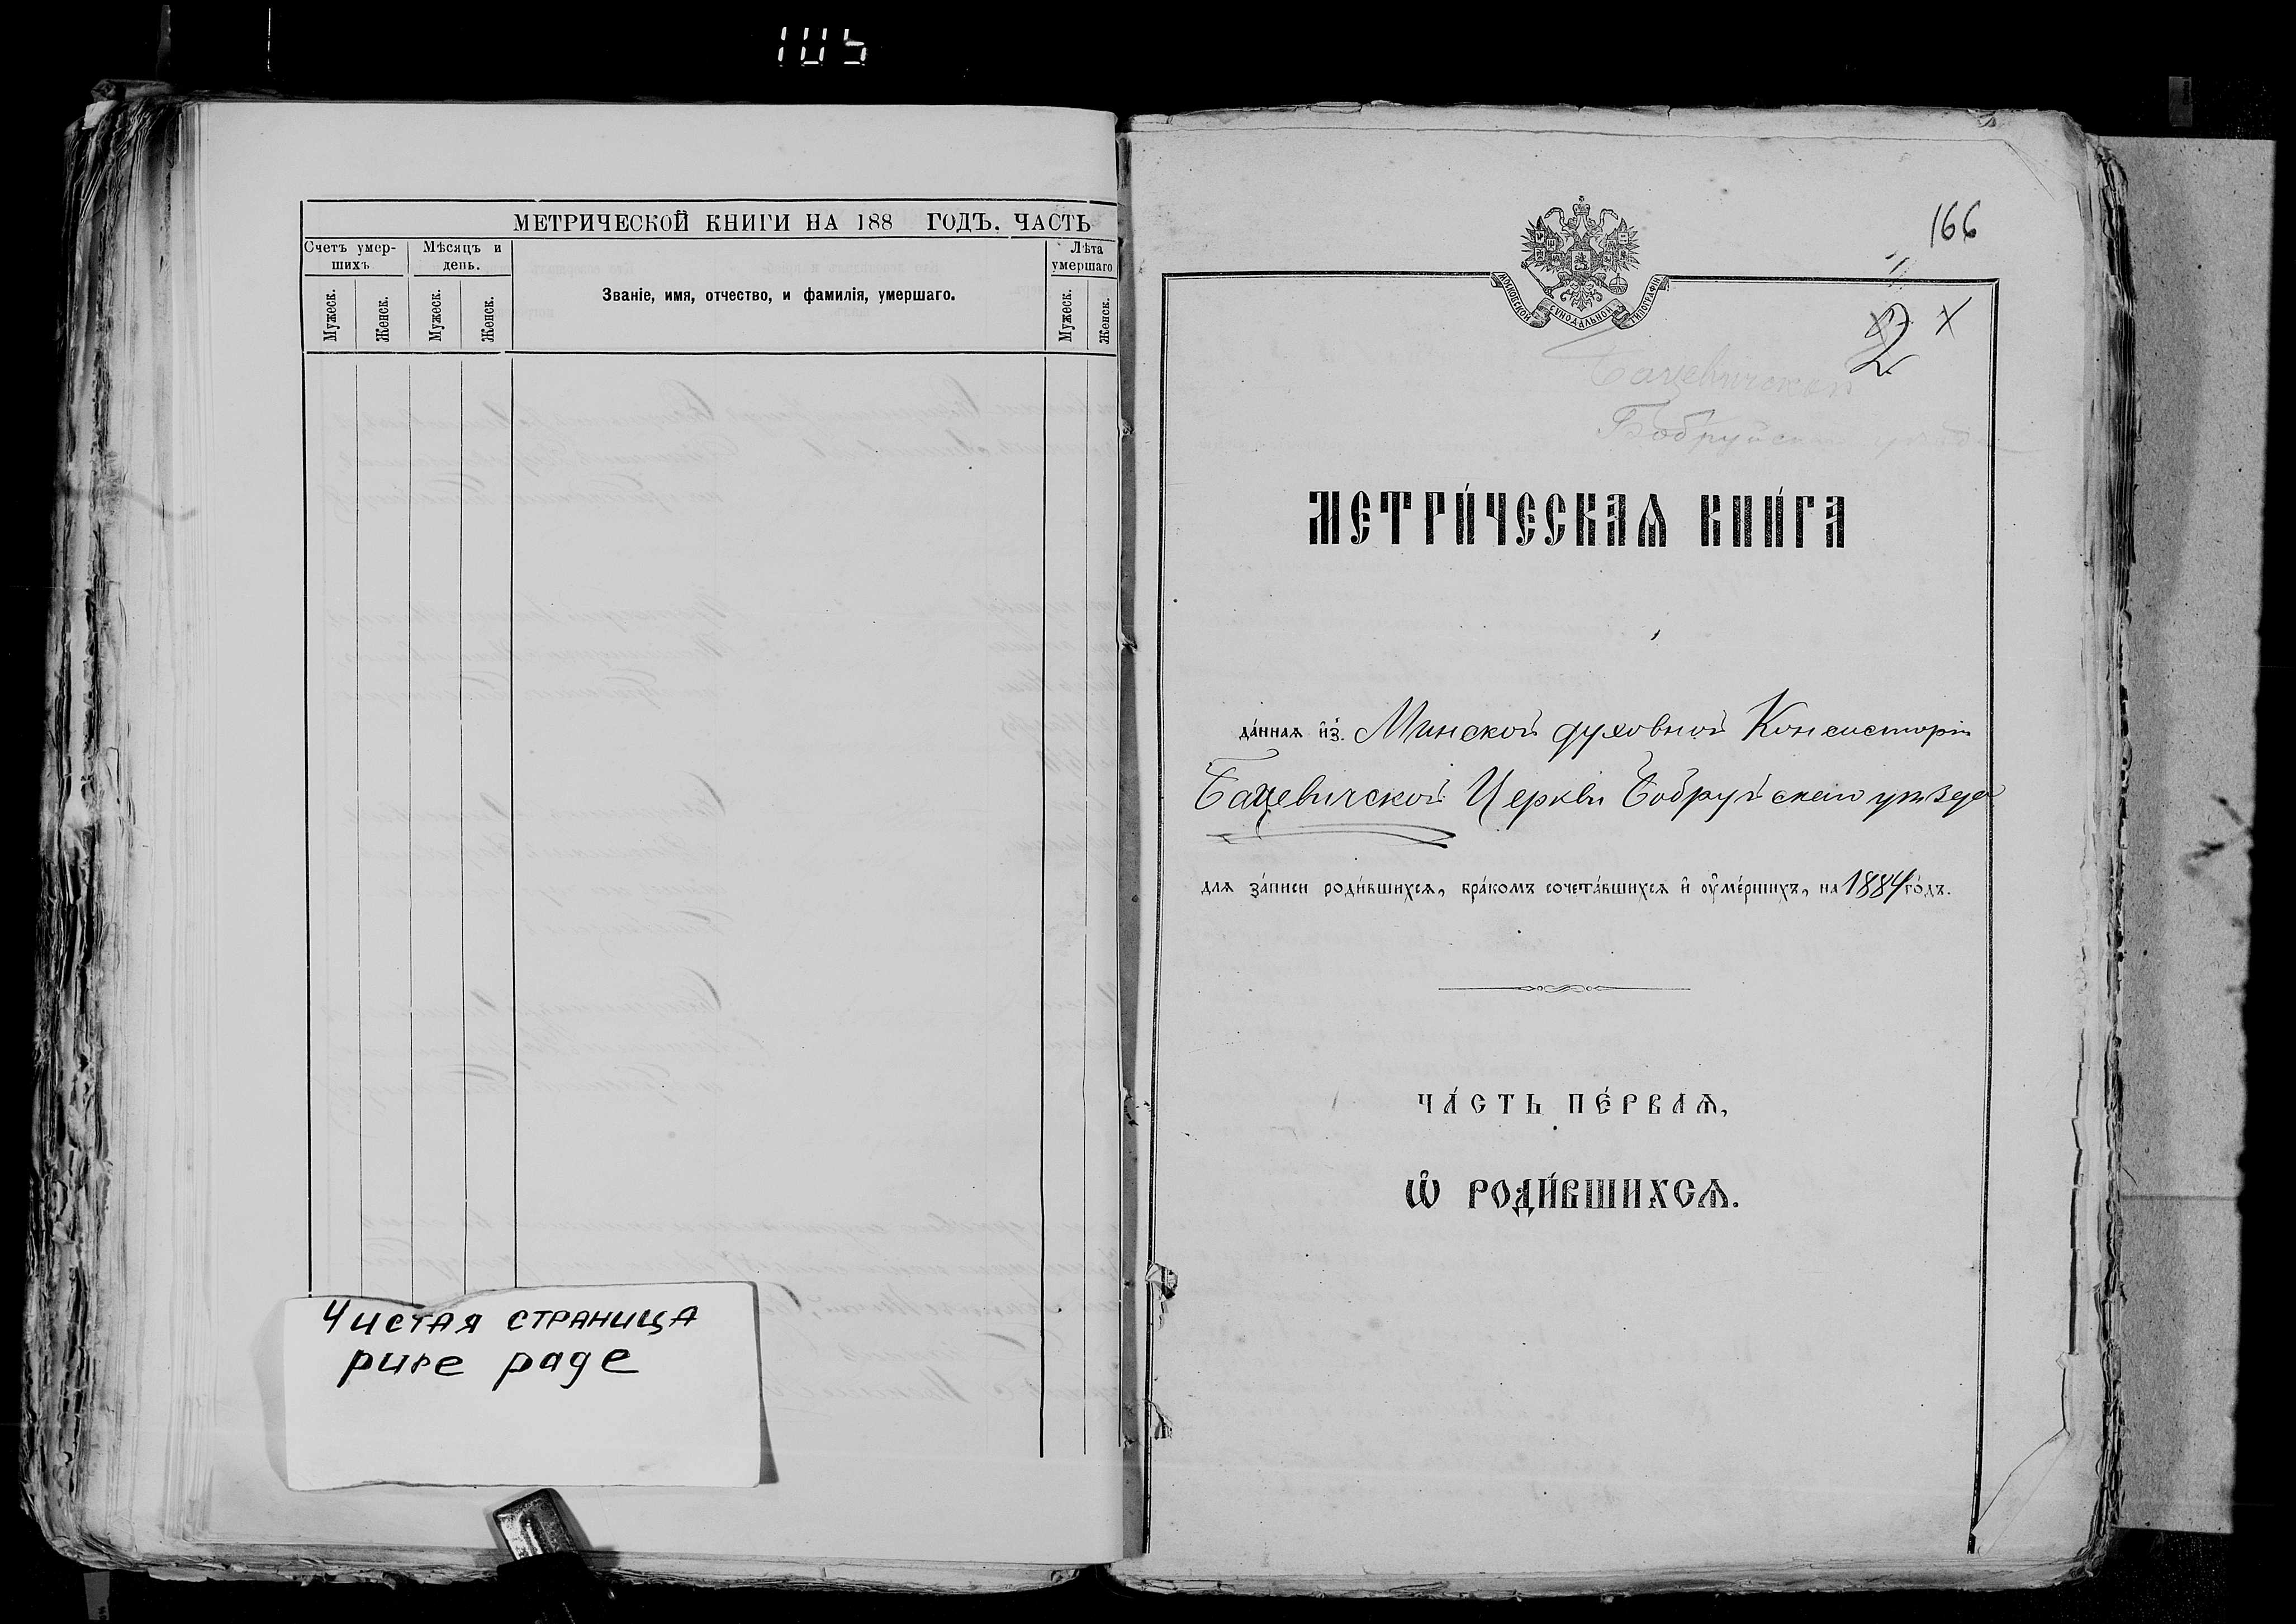 105
МЕТРИЧЕСКОЙ КНИГИ НА 188 ГОДЪ. ЧАСТЬ
Счетъ умер-
шихъ
Мѣсяцъ и
день.
Званіе, имя, отчество, и фамилія, умершаго.
Лѣта
умершаго
Мужеск.
Женск.
Мужеск.
Женск.
Мужеск.
Женск.
Чистая страница
pure page
166
МОСКОВСКОЙ СѴНОДАЛЬНОЙ ТИПОГРАФІИ
2 х
Бацевичская
Бобруйскаго уѣзда
МЕТРИ́ЧЕСКАѦ КНИ́ГА
да́нная и҆з̾ Минской духовной Консисторіи
Бацевичской Церкви Бобруйскаго уѣзда
для за́писи роди́вшихся, бра́комъ сочета́вшихся и҆ ᲂу҆ме́ршихъ, на 1884 го́дъ.
ЧА́СТЬ ПЕ́РВАѦ,
Ѽ РОДИ́ВШИХСѦ.